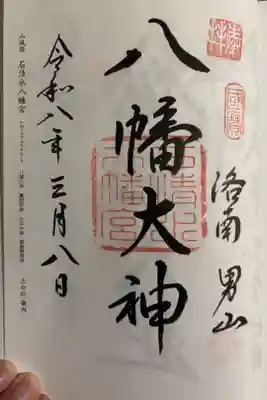 奉拝
国宝
洛南 男山
八幡大神
石清水八幡宮
令和八年三月八日
山城国 石清水八幡宮